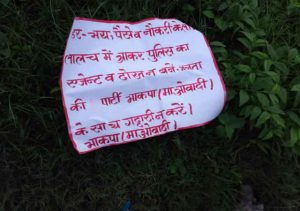 डर-भय, पैसे व नौकरी के लिए
लालच में आकर पुलिस का
एजेन्ट व दोखन बने, जनता
की पार्टी भाकपा (माओवादी)
के साथ गद्दारी न करें।
भाकपा (माओवादी)।